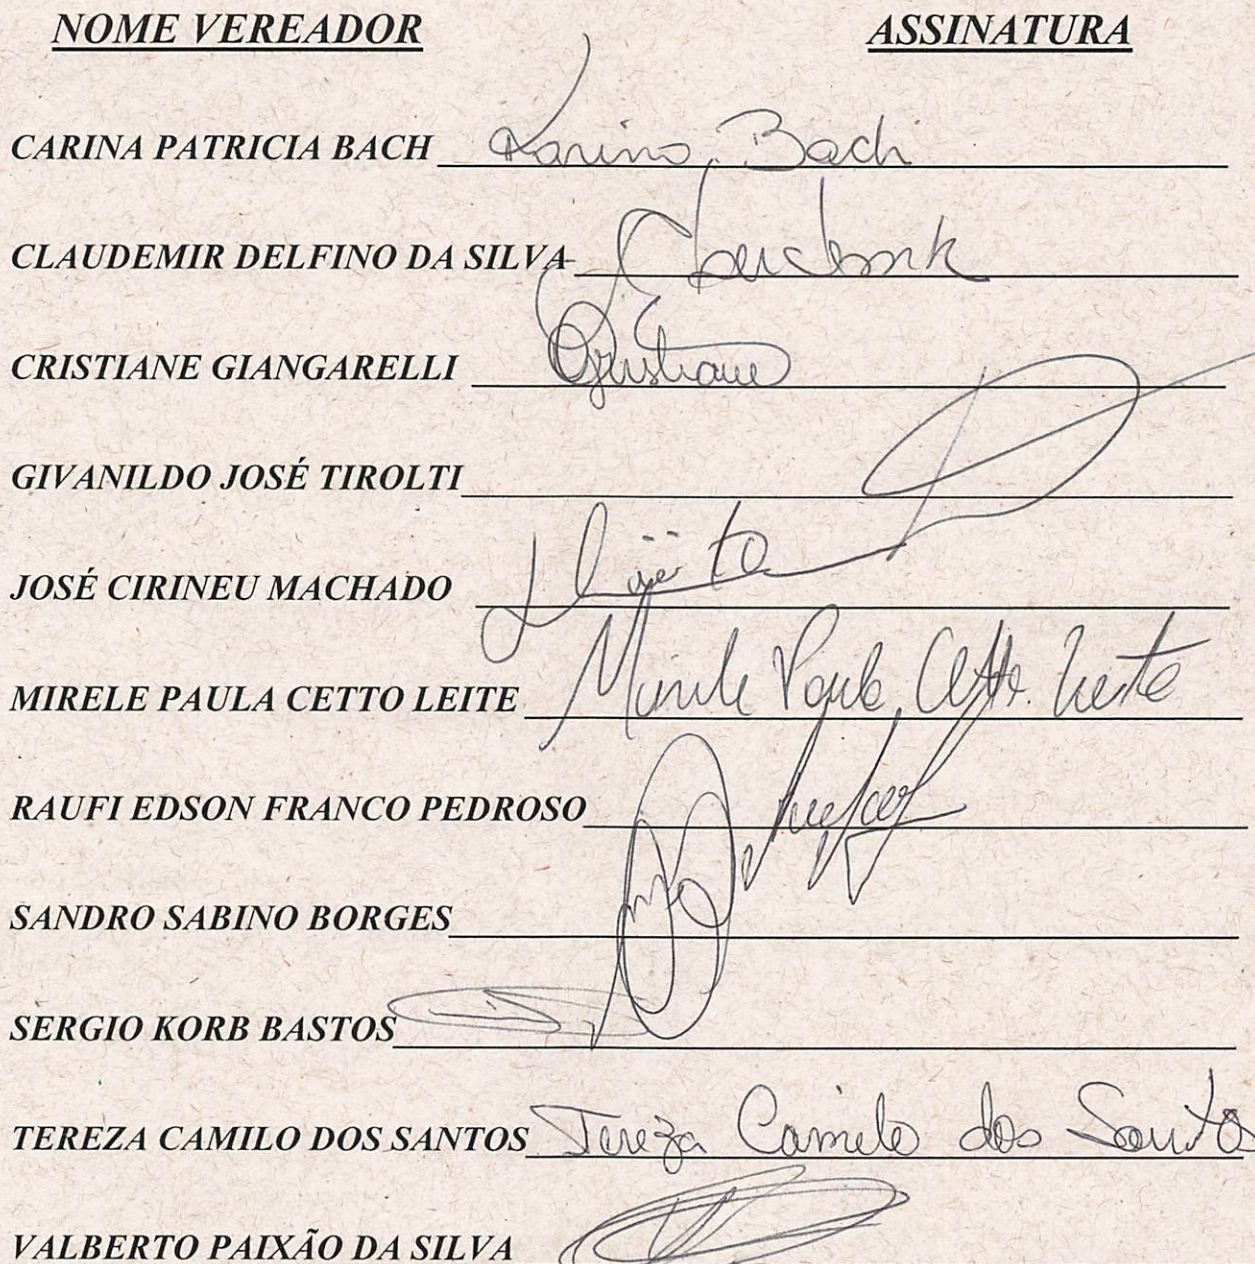 NOME VEREADOR ASSINATURA
CARINA PATRICIA BACH Karina Bach
CLAUDEMIR DELFINO DA SILVA
CRISTIANE GIANGARELLI Cristiane
GIVANILDO JOSÉ TIROLTI
JOSÉ CIRINEU MACHADO
MIRELE PAULA CETTO LEITE Mirele Paula Cetto Leite
RAUFI EDSON FRANCO PEDROSO
SANDRO SABINO BORGES
SERGIO KORB BASTOS
TEREZA CAMILO DOS SANTOS Tereza Camilo dos Santos
VALBERTO PAIXÃO DA SILVA